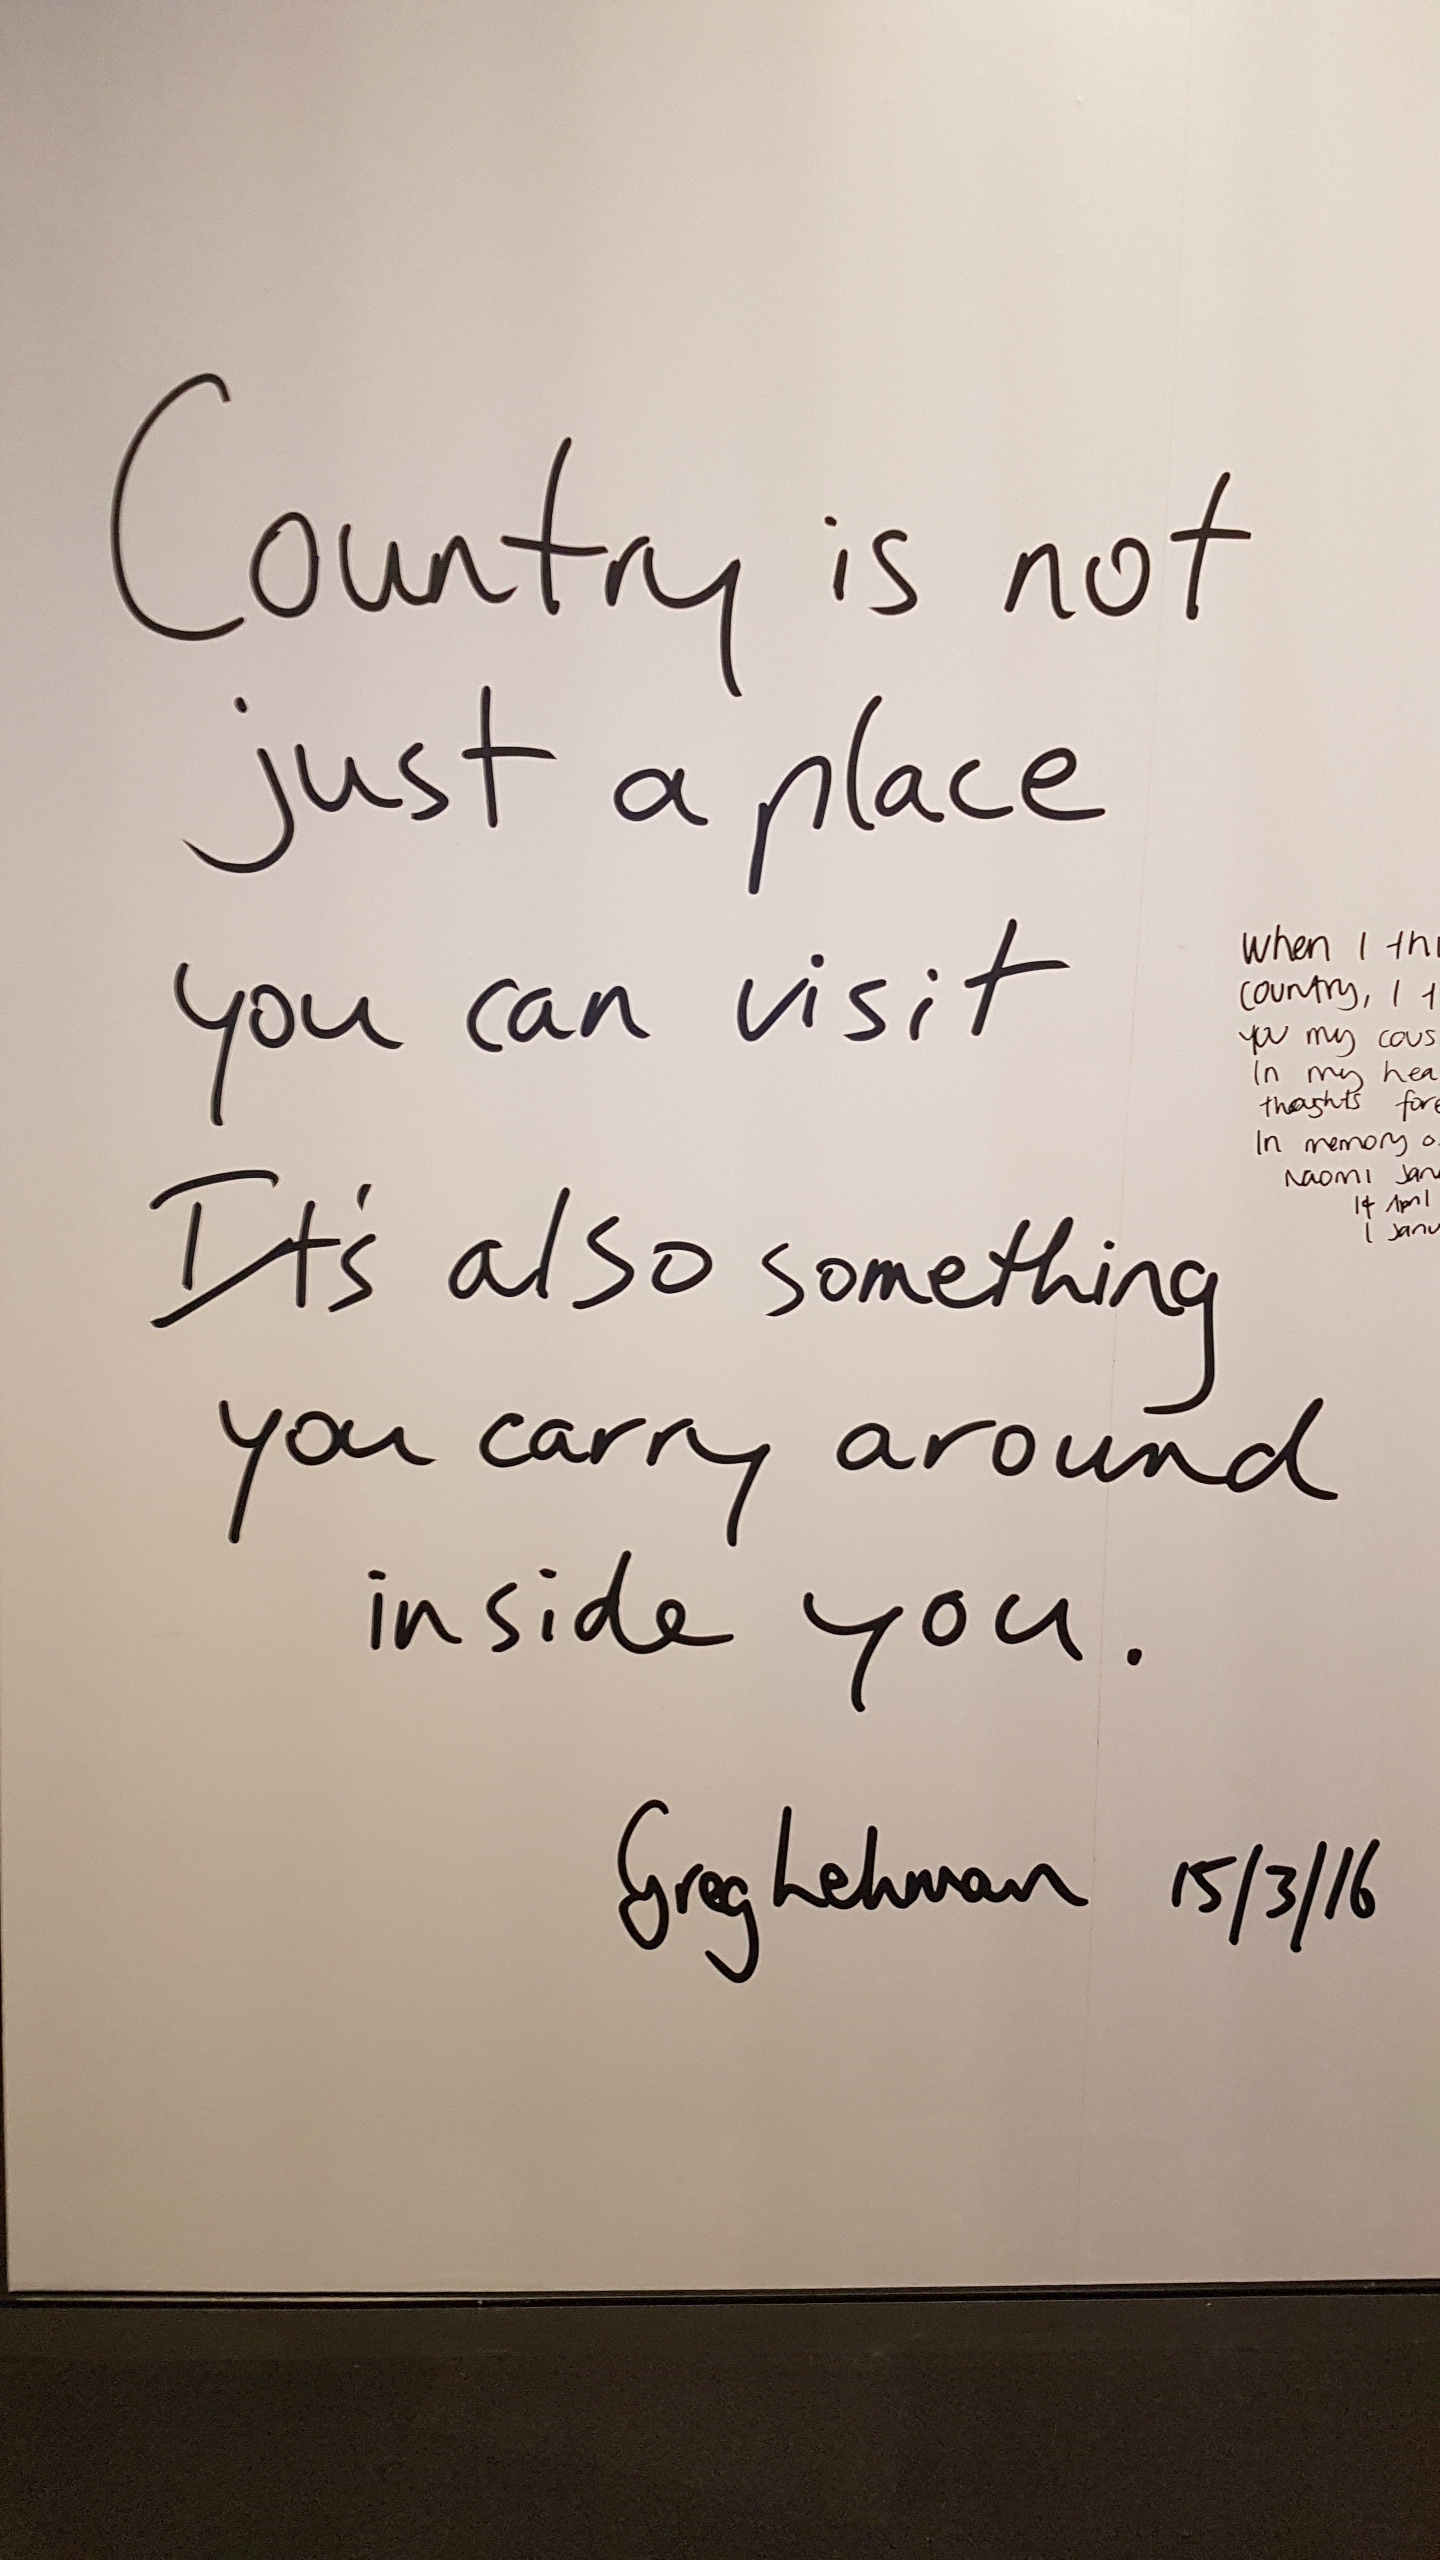 Country is not
just a place
you can visit
It's also something
you carry around
inside you.
Greg Lehman 15/3/16
When I thi
country, I t
you my cous
In my hea
thoughts fore
In memory o
Naomi Jan
14 April
1 Janu